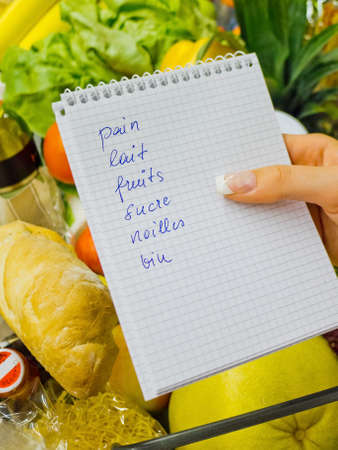 pain
lait
fruits
sucre
noilles
vin